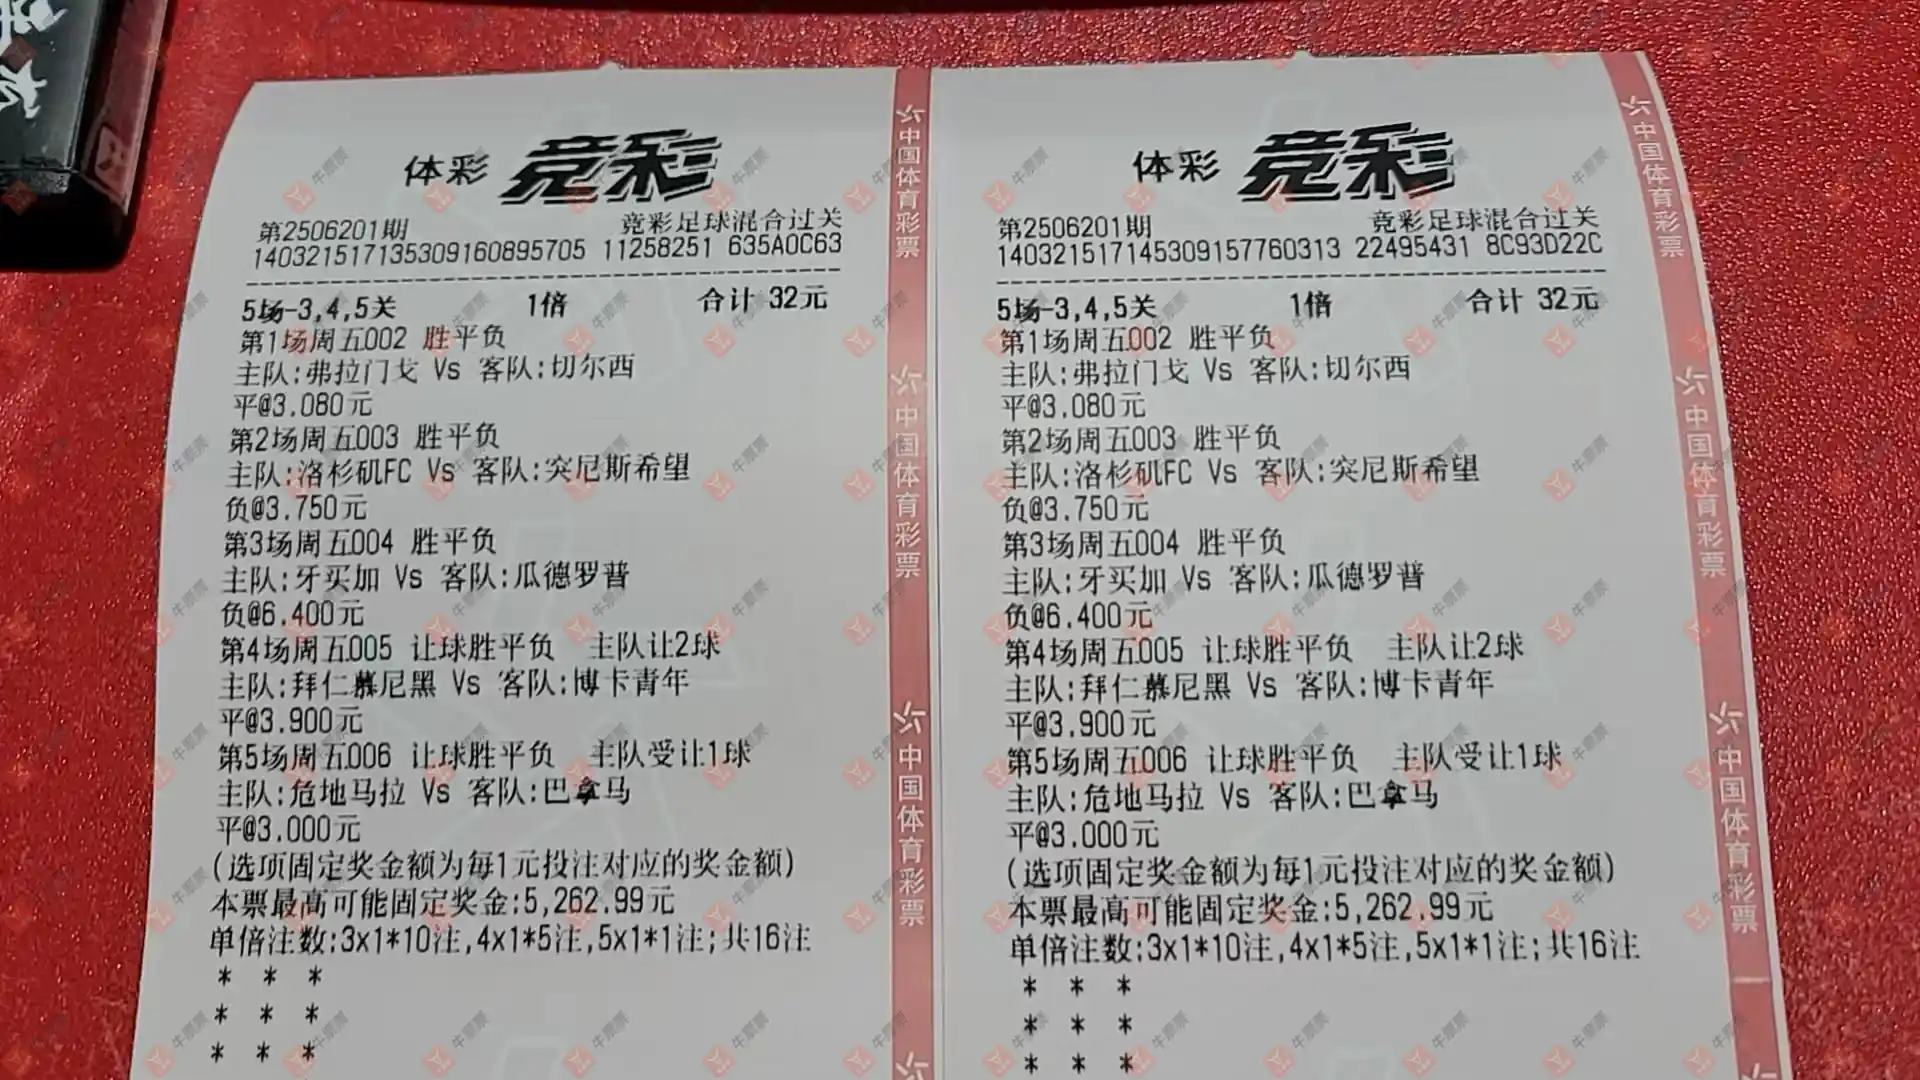 体彩 竞彩
第2506201期 竞彩足球混合过关
140321517135309160895705 11258251 635A0C63
5场-3,4,5关 1倍 合计 32元
第1场周五002 胜平负
主队:弗拉门戈 Vs 客队:切尔西
平@3.080元
第2场周五003 胜平负
主队:洛杉矶FC Vs 客队:突尼斯希望
负@3.750元
第3场周五004 胜平负
主队:牙买加 Vs 客队:瓜德罗普
负@6.400元
第4场周五005 让球胜平负 主队让2球
主队:拜仁慕尼黑 Vs 客队:博卡青年
平@3.900元
第5场周五006 让球胜平负 主队受让1球
主队:危地马拉 Vs 客队:巴拿马
平@3.000元
(选项固定奖金额为每1元投注对应的奖金额)
本票最高可能固定奖金:5,262.99元
单倍注数:3x1*10注,4x1*5注,5x1*1注;共16注
* * *
* * *
* * *
中国体育彩票
中国体育彩票
中国体育彩票
体彩 竞彩
第2506201期 竞彩足球混合过关
140321517145309157760313 22495431 8C93D22C
5场-3,4,5关 1倍 合计 32元
第1场周五002 胜平负
主队:弗拉门戈 Vs 客队:切尔西
平@3.080元
第2场周五003 胜平负
主队:洛杉矶FC Vs 客队:突尼斯希望
负@3.750元
第3场周五004 胜平负
主队:牙买加 Vs 客队:瓜德罗普
负@6.400元
第4场周五005 让球胜平负 主队让2球
主队:拜仁慕尼黑 Vs 客队:博卡青年
平@3.900元
第5场周五006 让球胜平负 主队受让1球
主队:危地马拉 Vs 客队:巴拿马
平@3.000元
(选项固定奖金额为每1元投注对应的奖金额)
本票最高可能固定奖金:5,262.99元
单倍注数:3x1*10注,4x1*5注,5x1*1注;共16注
* * *
* * *
* * *
中国体育彩票
中国体育彩票
中国体育彩票